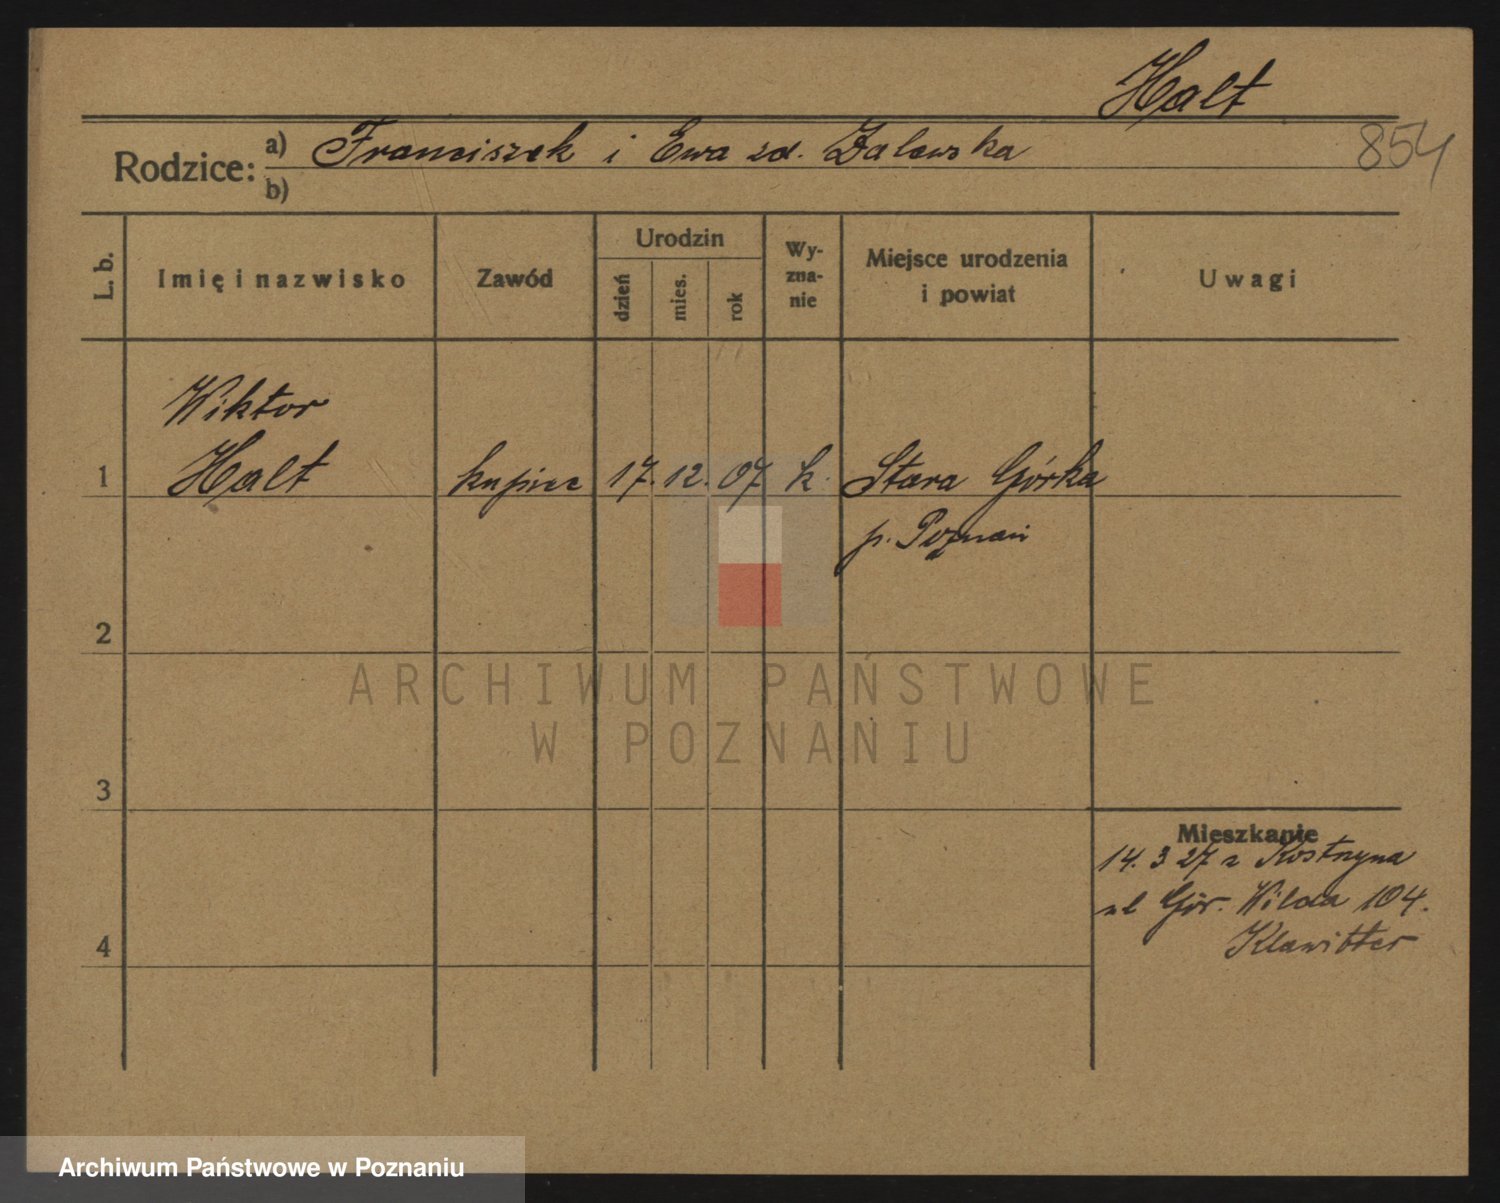 Halt
854
Rodzice: a) Franciszek i Ewa zd. Zalewska
b)
L. b.
Imię i nazwisko
Zawód
Urodzin
dzień
mies.
rok
Wy-
zna-
nie
Miejsce urodzenia
i powiat
Uwagi
Wiktor
1 Halt kupiec 17. 12. 07 k. Stara Górka
p. Poznań
2
3
4
Mieszkanie
14. 3 27 z Kostrzyna
ul Gór. Wilda 104.
Klawitter
ARCHIWUM PAŃSTWOWE
W POZNANIU
Archiwum Państwowe w Poznaniu